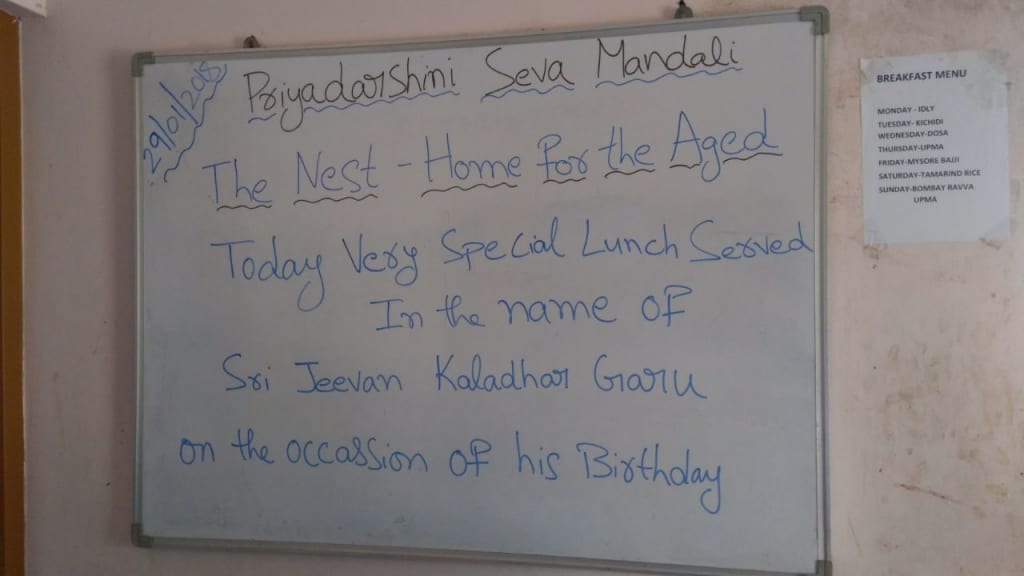 29/01/2015
Priyadarshini Seva Mandali
The Nest - Home For the Aged
Today Very Special Lunch Served
In the name of
Sri Jeevan Kaladhar Garu
on the occassion of his Birthday
BREAKFAST MENU
MONDAY - IDLY
TUESDAY- KICHIDI
WEDNESDAY-DOSA
THURSDAY-UPMA
FRIDAY-MYSORE BAJJI
SATURDAY-TAMARIND RICE
SUNDAY-BOMBAY RAVVA
UPMA